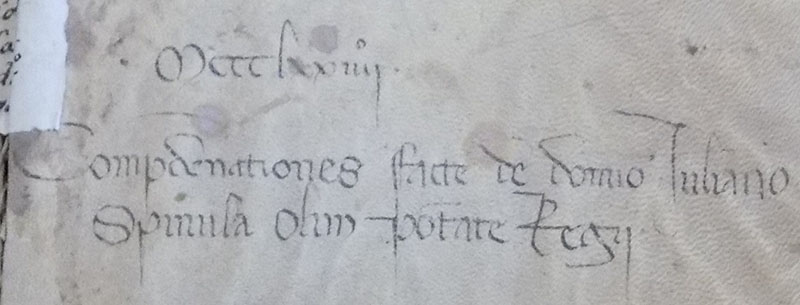 Mccclxxiiij.
Compdēnationes facte de dōmīo Iuliano
Spinula olim potāte Regij